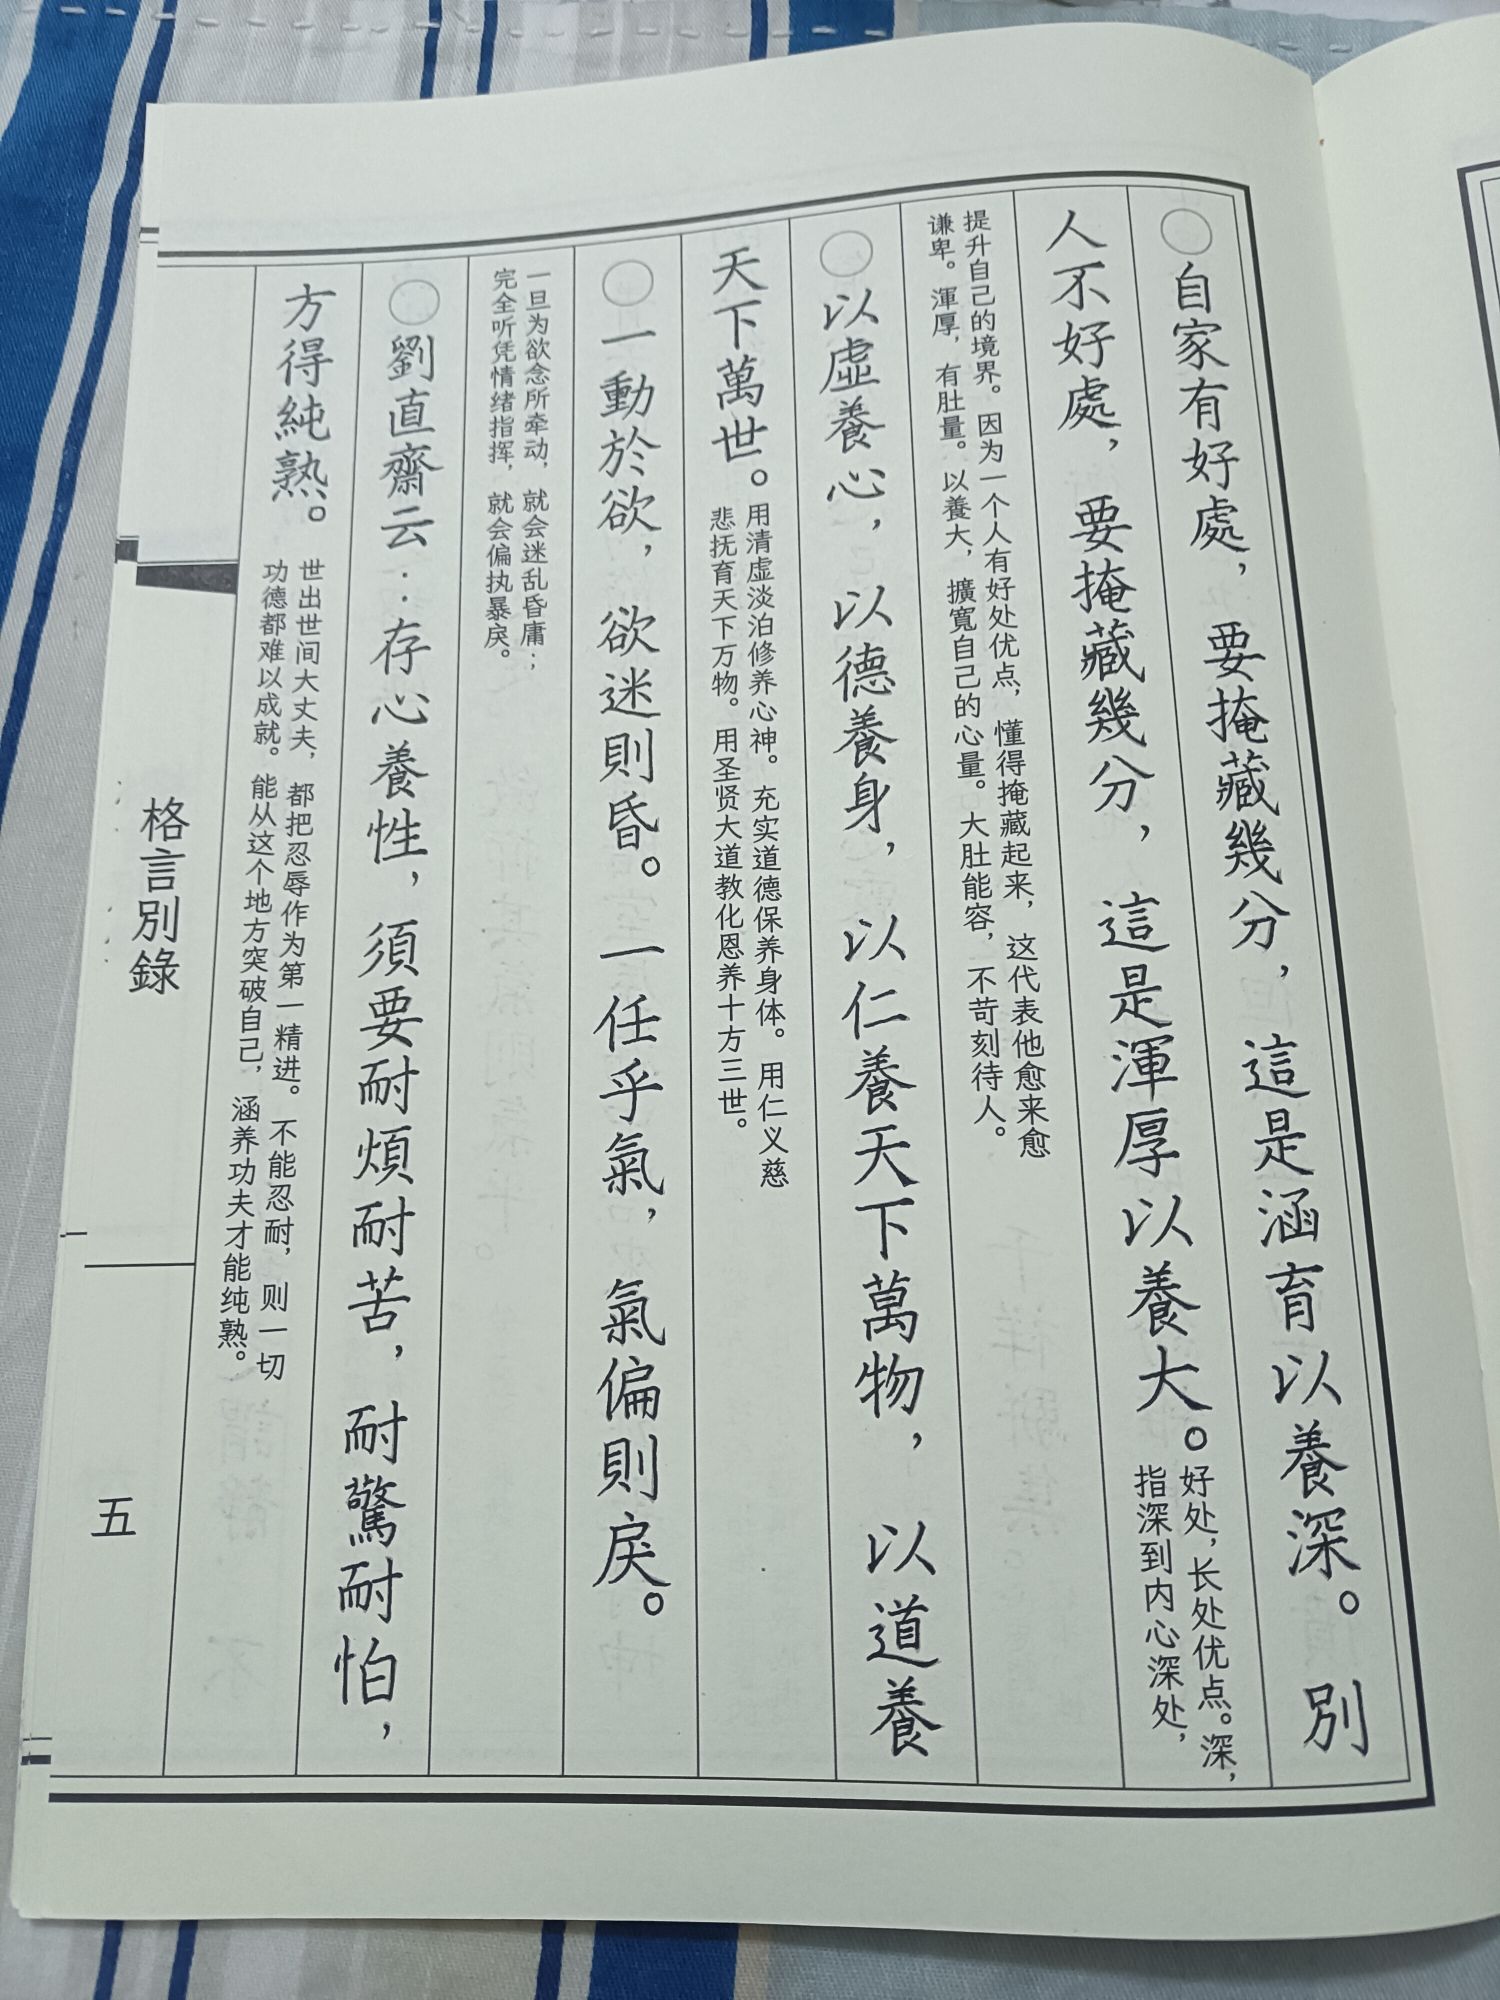 ○自家有好處，要掩藏幾分，這是涵育以養深。別
人不好處，要掩藏幾分，這是渾厚以養大。
好处，长处优点。深，
指深到内心深处，
提升自己的境界。因为一个人有好处优点，懂得掩藏起来，这代表他愈来愈
谦卑。渾厚，有肚量。以養大，擴寬自己的心量。大肚能容，不苛刻待人。
○以虛養心，以德養身，以仁養天下萬物，以道養
天下萬世。
用清虚淡泊修养心神。充实道德保养身体。用仁义慈
悲抚育天下万物。用圣贤大道教化恩养十方三世。
○一動於欲，欲迷則昏。一任乎氣，氣偏則戾。
一旦为欲念所牵动，就会迷乱昏庸；
完全听凭情绪指挥，就会偏执暴戾。
○劉直齋云：存心養性，須要耐煩耐苦，耐驚耐怕，
方得純熟。
世出世间大丈夫，都把忍辱作为第一精进。不能忍耐，则一切
功德都难以成就。能从这个地方突破自己，涵养功夫才能纯熟。
格言別錄
五